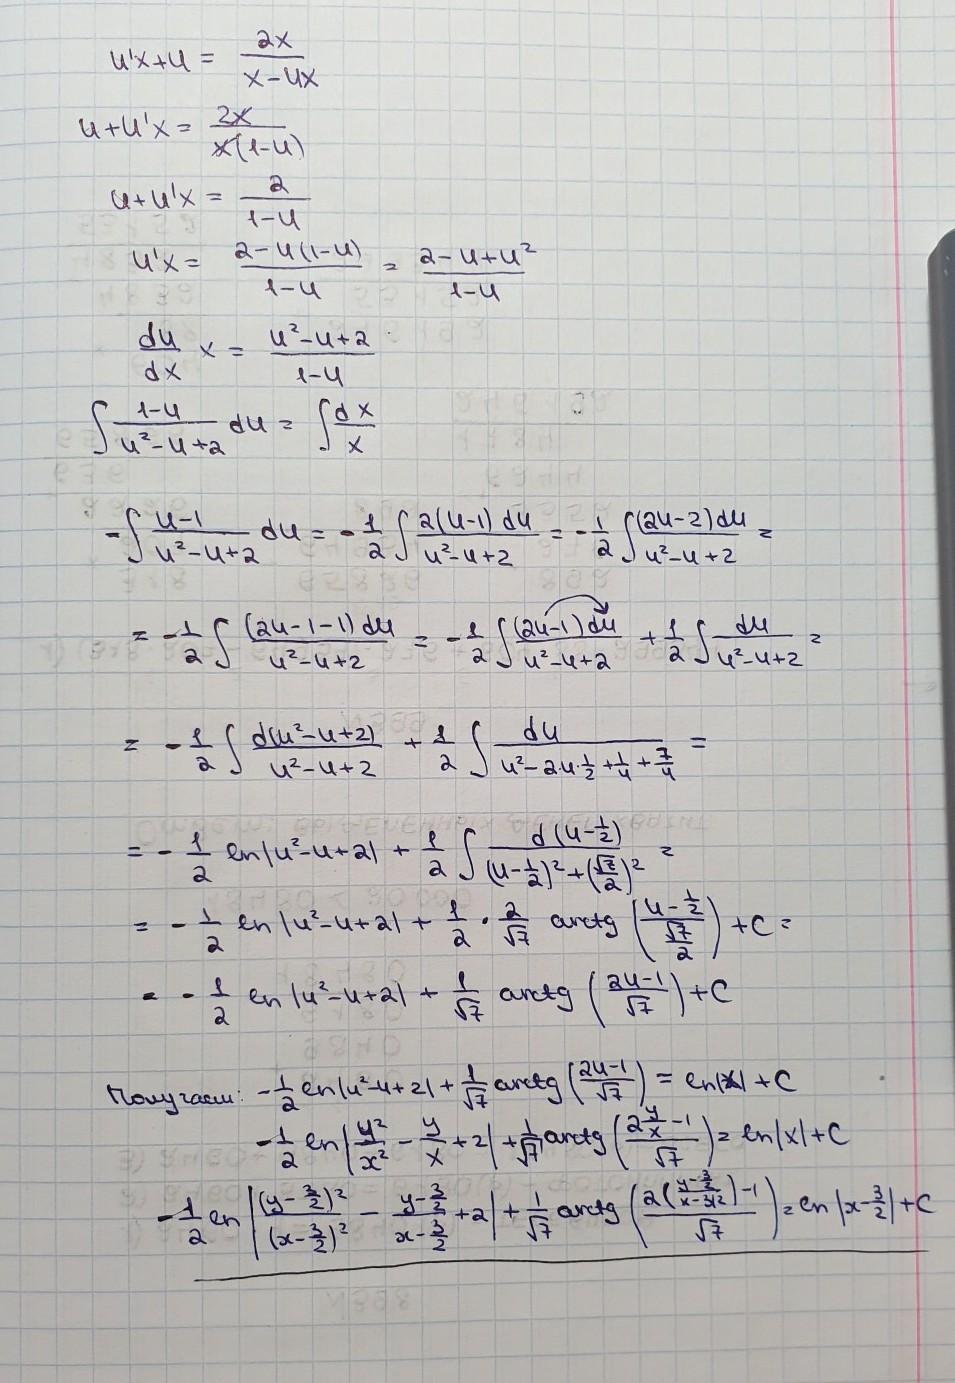 u'x+u = 2x/(x-ux)
u+u'x = 2x/(x(1-u))
u+u'x = 2/(1-u)
u'x = (2-u(1-u))/(1-u) = (2-u+u²)/(1-u)
du/dx x = (u²-u+2)/(1-u)
∫ (1-u)/(u²-u+2) du = ∫ dx/x
-∫ (u-1)/(u²-u+2) du = -1/2 ∫ 2(u-1)du/(u²-u+2) = -1/2 ∫ (2u-2)du/(u²-u+2) =
= -1/2 ∫ (2u-1-1)du/(u²-u+2) = -1/2 ∫ (2u-1)du/(u²-u+2) + 1/2 ∫ du/(u²-u+2) =
= -1/2 ∫ d(u²-u+2)/(u²-u+2) + 1/2 ∫ du/(u²-2u·1/2+1/4+7/4) =
= -1/2 ln|u²-u+2| + 1/2 ∫ d(u-1/2)/((u-1/2)²+(√7/2)²) =
= -1/2 ln|u²-u+2| + 1/2 · 2/√7 arctg((u-1/2)/(√7/2)) + C =
= -1/2 ln|u²-u+2| + 1/√7 arctg((2u-1)/√7) + C
Получаем: -1/2 ln|u²-u+2| + 1/√7 arctg((2u-1)/√7) = ln|x| + C
-1/2 ln|y²/x² - y/x + 2| + 1/√7 arctg((2 y/x -1)/√7) = ln|x| + C
-1/2 ln|(y-3/2)²/(x-3/2)² - (y-3/2)/(x-3/2) + 2| + 1/√7 arctg((2((y-3/2)/(x-3/2))-1)/√7) = ln|x-3/2| + C